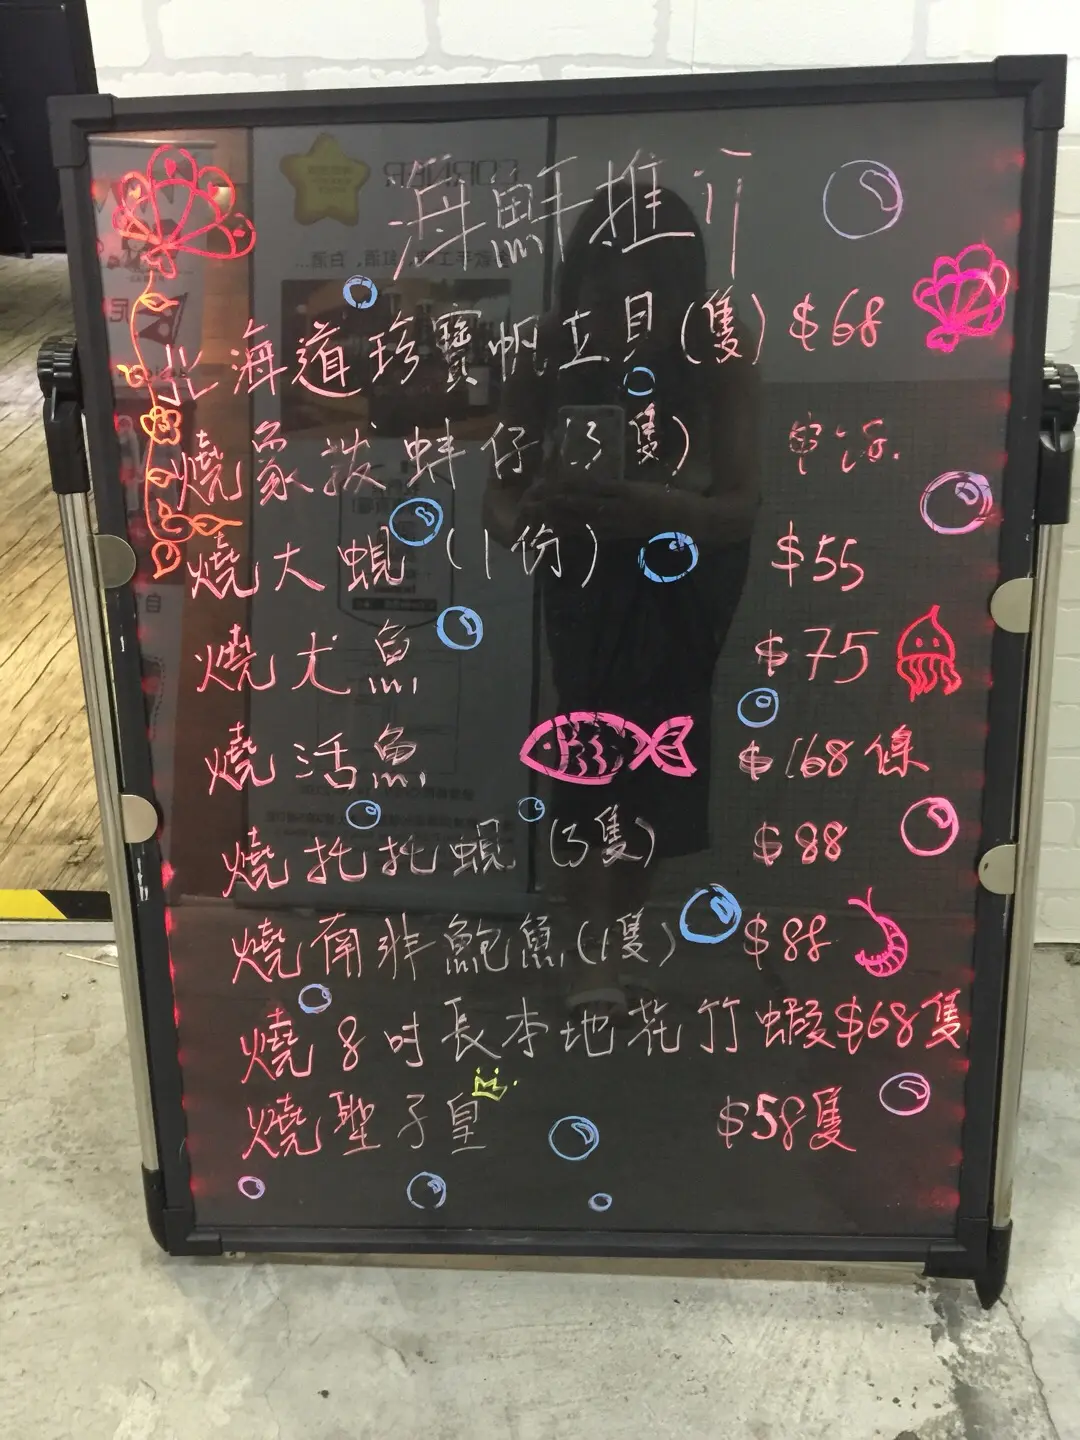 海鮮推介
北海道珍寶帆立貝(隻) $68
燒象拔蚌仔(3隻)
燒大蜆(1份) $55
燒尤魚 $75
燒活魚 $168條
燒扥扥蜆(3隻) $88
燒南非鮑魚(1隻) $88
燒8吋長本地花竹蝦$68隻
燒聖子皇 $58隻